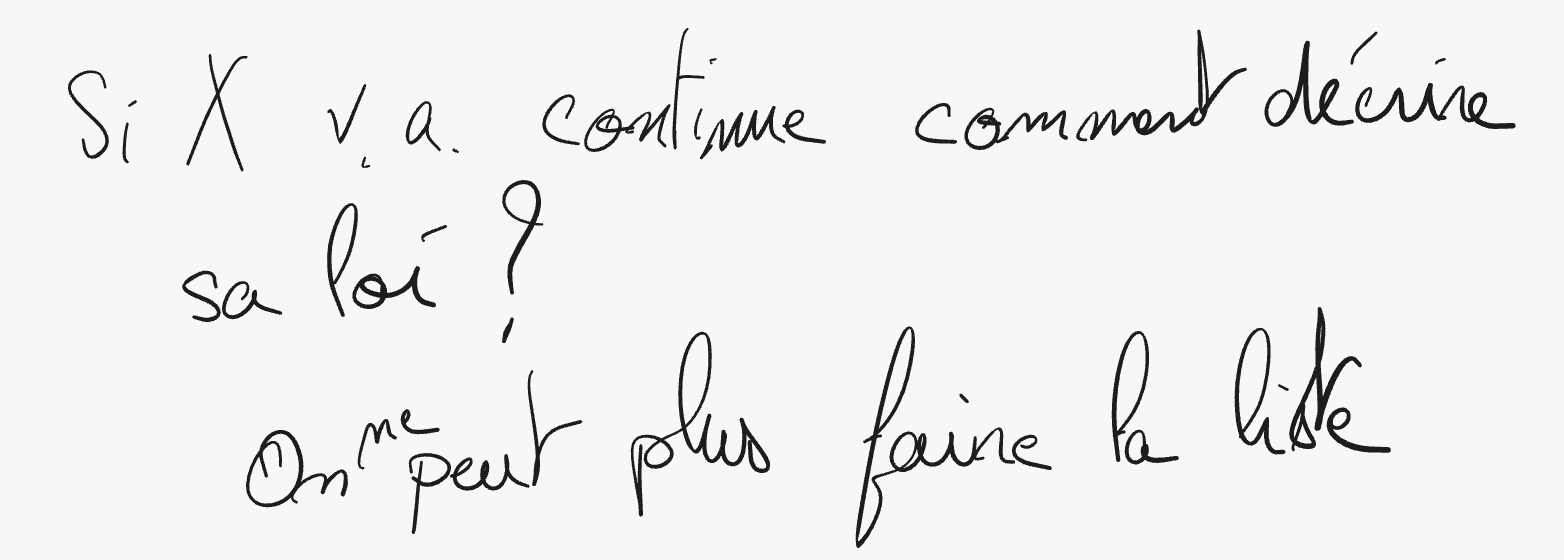 Si X v.a. continue comment décrire
sa loi ?
On ne peut plus faire la liste